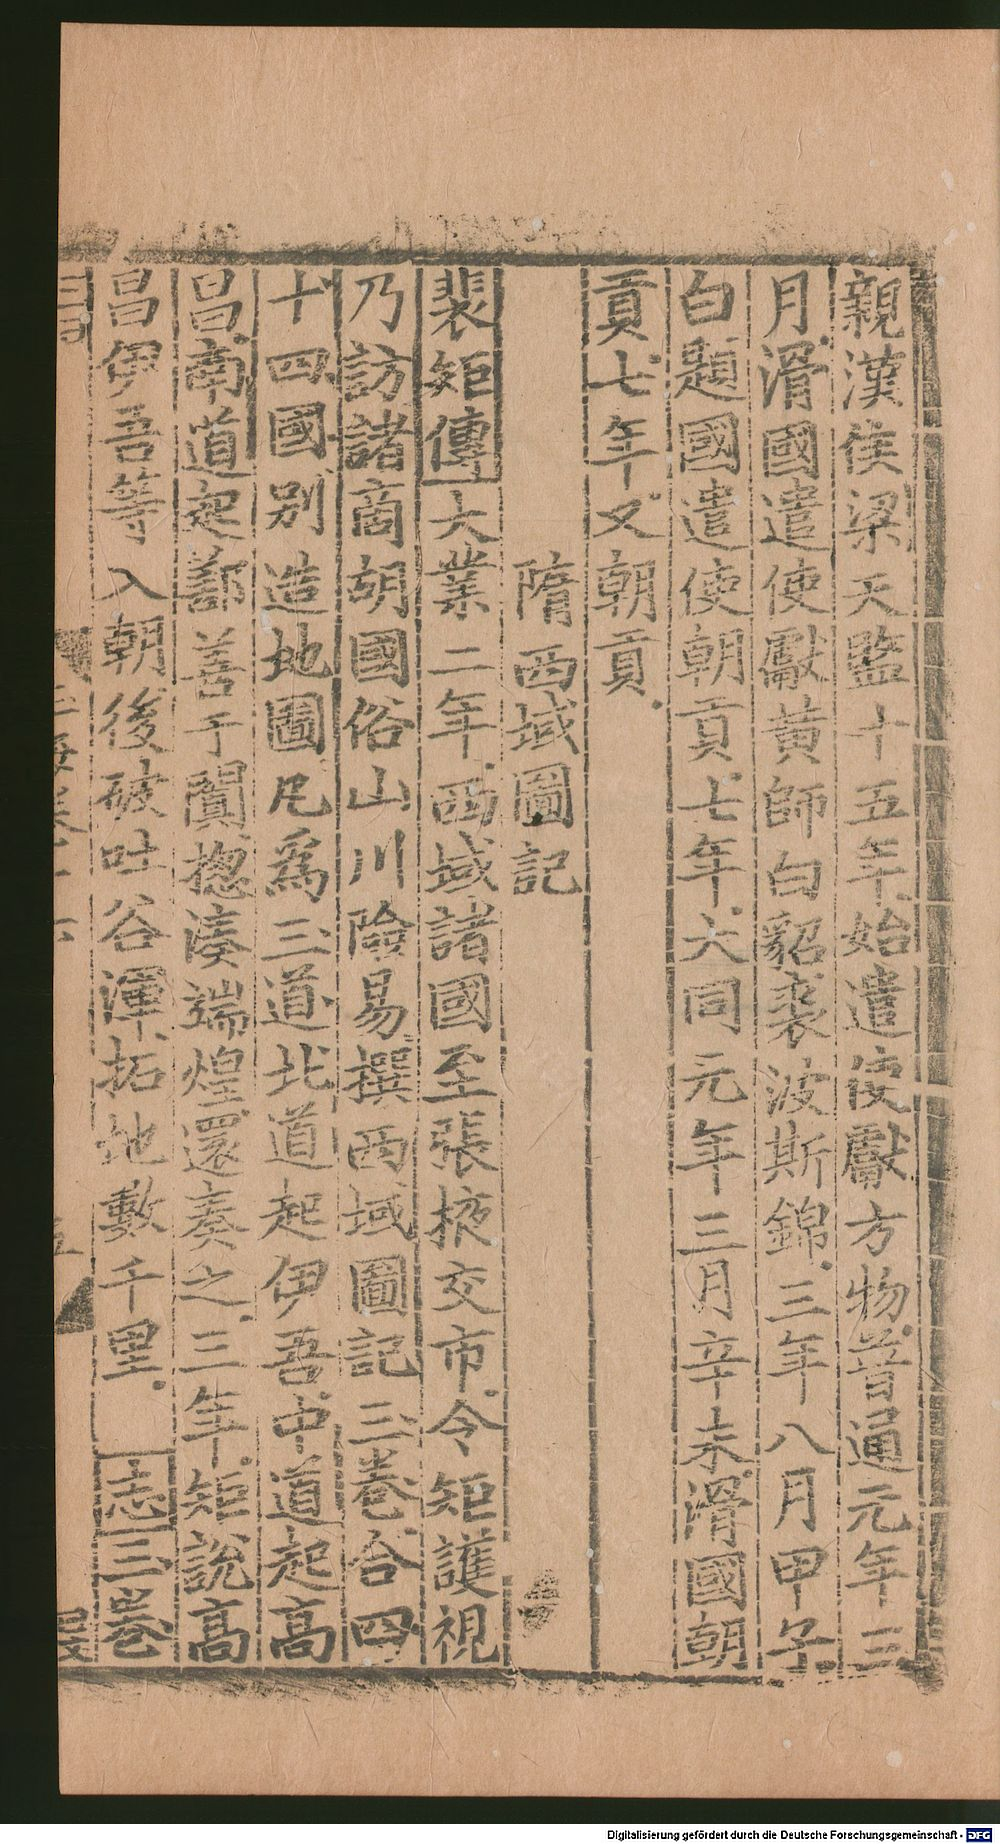 親漢侯梁天監十五年始遣使獻方物普通元年三
月滑國遣使獻黄師白貂裘波斯錦三年八月甲子
白題國遣使朝貢七年大同元年三月辛未滑國朝
貢七年又朝貢
隋西域圖記
裴矩傳大業二年西域諸國至張掖交市令矩護視
乃訪諸商胡國俗山川險易撰西域圖記三巻合四
十四國别造地圖凡爲三道北道起伊吾中道起高
昌南道起鄯善于闐揔湊端煌還奏之三年矩說髙
昌伊吾等入朝後破吐谷渾拓地數千里志三巻
Digitalisierung gefördert durch die Deutsche Forschungsgemeinschaft - DFG